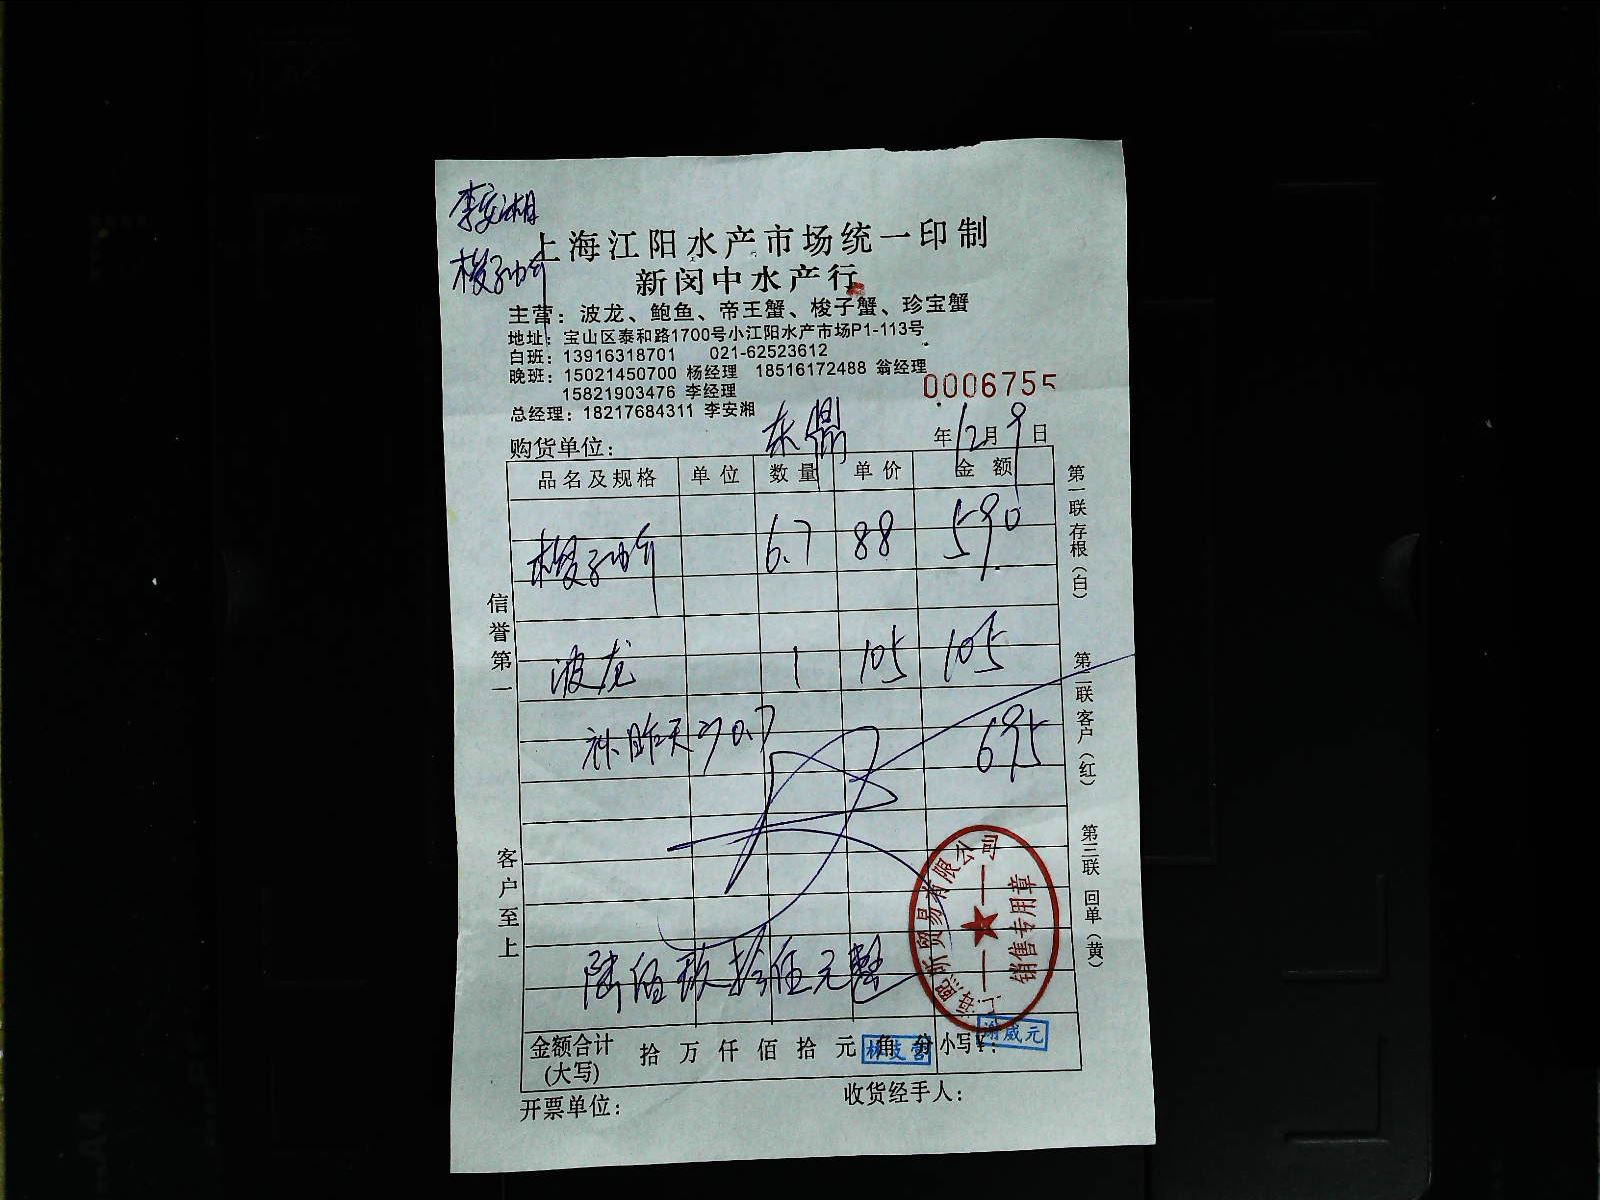 李安湘
梭子蟹
上海江阳水产市场统一印制
新闵中水产行
主营：波龙、鲍鱼、帝王蟹、梭子蟹、珍宝蟹
地址：宝山区泰和路1700号小江阳水产市场P1-113号
白班：13916318701 021-62523612
晚班：15021450700 杨经理 18516172488 翁经理
15821903476 李经理
总经理：18217684311 李安湘
0006755
购货单位： 东鼎 年12月9日
品名及规格 单位 数量 单价 金额
梭子蟹 6.7 88 590
波龙 1 105 105
补昨天 0.7 695
陆佰玖拾伍元整
金额合计(大写) 拾 万 仟 佰 拾 元 角 分 小写¥：
开票单位： 收货经手人：
信誉第一
客户至上
第一联 存根（白）
第二联 客户（红）
第三联 回单（黄）
贸易有限公司
销售专用章
谢威元